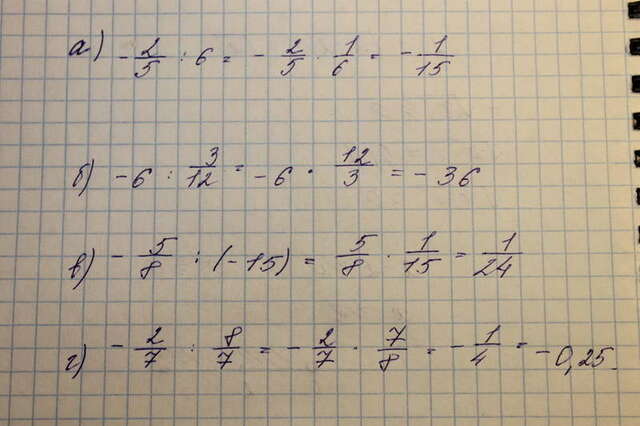 а) -2/5 : 6 = -2/5 · 1/6 = -1/15
б) -6 : 3/12 = -6 · 12/3 = -36
в) -5/8 : (-15) = 5/8 · 1/15 = 1/24
г) -2/7 : 8/7 = -2/7 · 7/8 = -1/4 = -0,25.